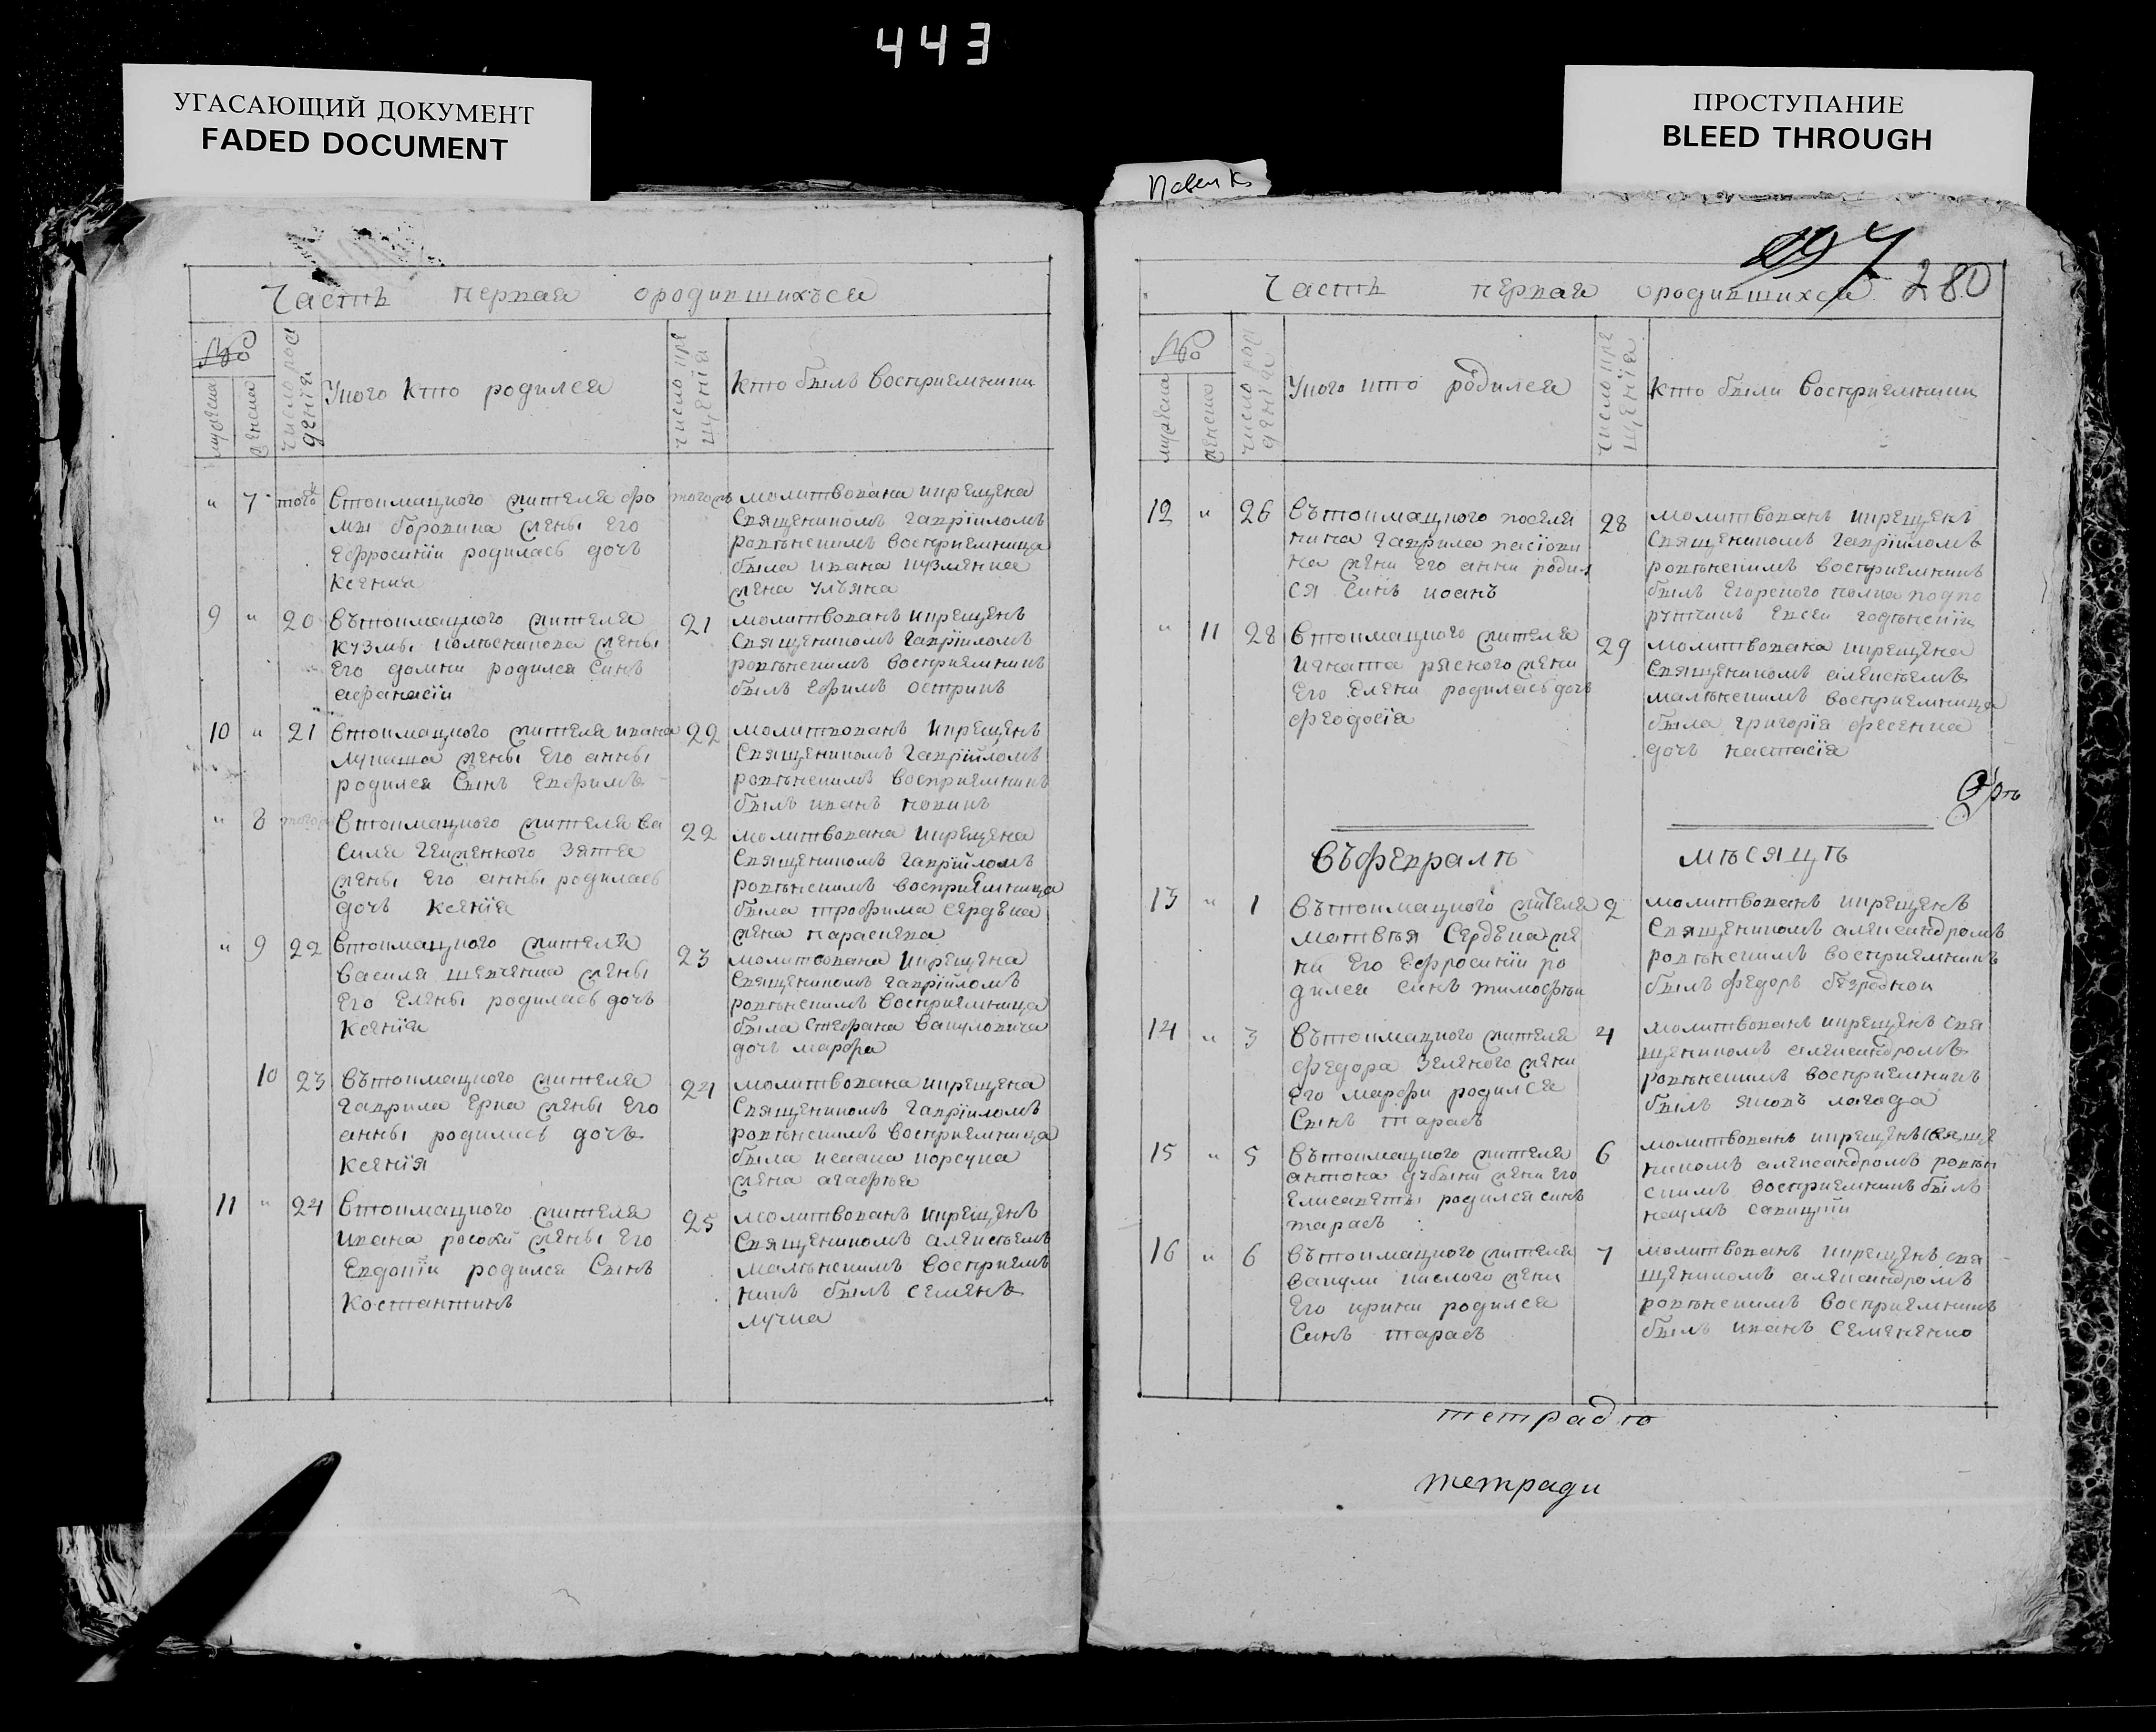 443
УГАСАЮЩИЙ ДОКУМЕНТ
FADED DOCUMENT
ПРОСТУПАНИЕ
BLEED THROUGH
280
Часть первая ородившихъся
№
мужеска
женска
число рож
денїя
Укого кто родился
число кре
щенїя
кто былъ восприемники
" 7 того втокмацкого жителя фо
мы боровика жены его
ефросинїи родилась дочь
ксения
молитвована икрещена
священикомъ гаврїиломъ
ровѣнскимъ восприемница
была ивана кузменка
жена ульяна
9 " 20 вътокмацкого жителя
кузмы колѣсникова жены
его домни родился синъ
афанасїи
21 молитвованъ икрещенъ
священикомъ гаврїиломъ
ровѣнскимъ восприемникъ
былъ ефимъ острикъ
10 " 21 втокмацкого жителя ивана
лупаща жены его анны
родился сынъ евфимъ
22 молитвованъ икрещенъ
священикомъ гаврїйломъ
ровѣнскимъ восприемникъ
былъ иванъ новикъ
" 8 втокмацкого жителя ва
силя зятя
жены его анны родилась
дочь ксенїя
22 молитвована икрещена
священикомъ гаврїйломъ
ровѣнскимъ восприемница
была трофима сердюка
жена параскева
" 9 22 втокмацкого жителя
василя шевченка жены
его елены родилась дочь
ксенїя
23 молитвована икрещена
священикомъ гаврїйломъ
ровѣнскимъ восприемница
была стефана вакуловича
дочь марфа
10 23 вътокмацкого жителя
гаврила ерка жены его
анны родилась дочь
ксенїя
24 молитвована икрещена
священикомъ гаврїиломъ
ровѣнскимъ восприемница
была исаака корсуна
жена агафия
11 " 24 втокмацкого жителя
ивана жены его
евдокїи родился сынъ
костантинъ
25 молитвованъ икрещенъ
священикомъ алексѣемъ
малѣнскимъ восприем
никъ былъ семенъ
лучка
Часть первая ородившихся
№
мужеска
женска
число рож
денїя
Укого кто родился
число кре
щенїя
кто были восприемники
12 " 26 вътокмацкого поселя
нина гаврила
жени его анни родил
ся синъ иоанъ
28 молитвованъ икрещенъ
священикомъ гаврїйломъ
ровѣнскимъ восприемникъ
былъ полка подпо
" 11 28 втокмацкого жителя
игната ряского жени
его елени родилась дочь
феодосїя
29 молитвована икрещена
священикомъ алексѣемъ
малѣнскимъ восприемница
была григорїя фесенка
дочь настасїя
въфевралѣ мѣсяцѣ
13 " 1 вътокмацкого жителя
матвѣя сердюка же
ни его ефросинїи ро
дился синъ тимофѣи
2 молитвованъ икрещенъ
священикомъ александромъ
ровѣнскимъ восприемникъ
былъ федоръ безроднои
14 " 3 вътокмацкого жителя
федора зеленого жени
его марфи родился
сынъ тарасъ
4 молитвованъ икрещенъ свя
щеникомъ александромъ
ровѣнскимъ восприемникъ
былъ яковъ лагода
15 " 5 вътокмацкого жителя
антона жени его
елисаветы родился синъ
тарасъ
6 молитвованъ икрещенъ свяще
никомъ александромъ ровѣн
скимъ восприемникъ былъ
наумъ савицкїи
16 " 6 вътокмацкого жителя
вакули кислого жени
его ирини родился
синъ тарасъ
7 молитвованъ икрещенъ свя
щеникомъ александромъ
ровѣнскимъ восприемникъ
былъ иванъ семененко
тетрадю
тетради